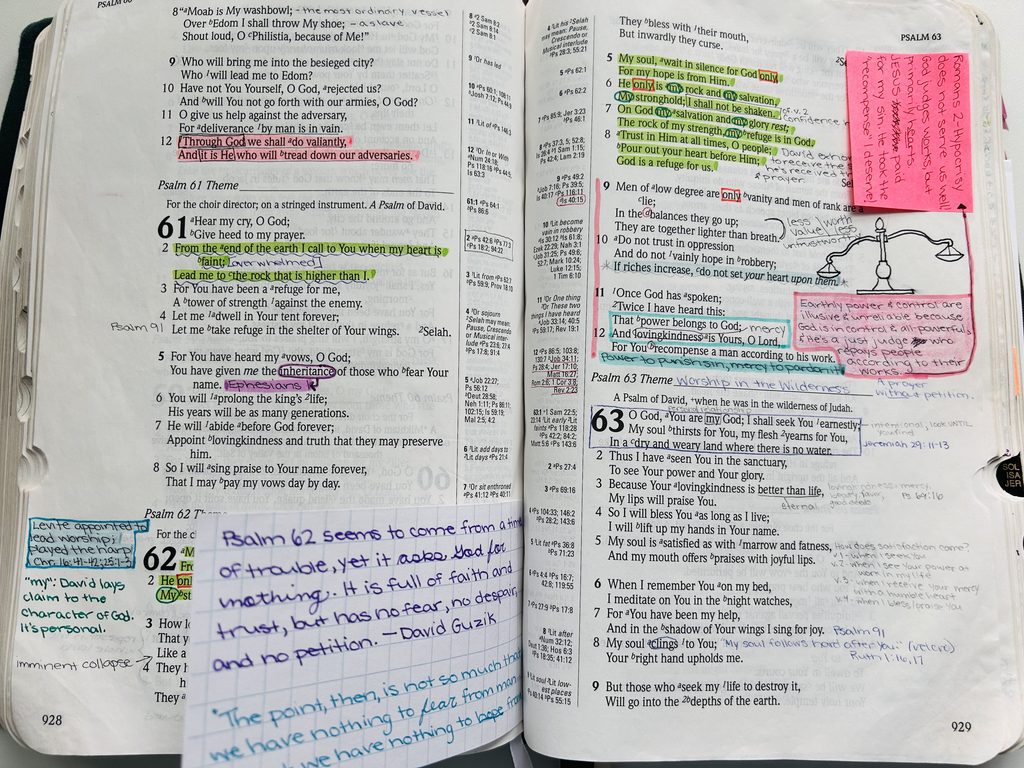 PSALM 60
8 "ªMoab is My washbowl; - the most ordinary vessel
Over ᵇEdom I shall throw My shoe; - a slave
Shout loud, O ᶜPhilistia, because of Me!"
9 Who will bring me into the besieged city?
Who ˡwill lead me to Edom?
10 Have not You Yourself, O God, ªrejected us?
And ᵇwill You not go forth with our armies, O God?
11 O give us help against the adversary,
For ªdeliverance ˡby man is in vain.
12 ˡThrough God we shall ªdo valiantly,
And it is He who will ᵇtread down our adversaries.
Psalm 61 Theme
For the choir director; on a stringed instrument. A Psalm of David.
61 ªHear my cry, O God;
ᵇGive heed to my prayer.
2 From the ªend of the earth I call to You when my heart is
ᵇfaint; (overwhelmed)
Lead me to ᶜthe rock that is higher than I.
3 For You have been a ªrefuge for me,
A ᵇtower of strength ˡagainst the enemy.
4 Let me ˡªdwell in Your tent forever;
Psalm 91
Let me ᵇtake refuge in the shelter of Your wings. ²Selah.
5 For You have heard my ªvows, O God;
You have given me the inheritance of those who ᵇfear Your
name. Ephesians 1
6 You will ˡªprolong the king's ²life;
His years will be as many generations.
7 He will ˡabide ªbefore God forever;
Appoint ᵇlovingkindness and truth that they may preserve
him.
8 So I will ªsing praise to Your name forever,
That I may ᵇpay my vows day by day.
Psalm 62 Theme
For the c
Levite appointed to
lead worship;
played the harp
Chr. 16:41-42; 25:1-3
62
2 He only
My st
"my": David lays
claim to the
character of God.
It's personal.
3 How l
That y
Like a
imminent collapse →
4 They h
They
928
Psalm 62 seems to come from a time
of trouble, yet it asks God for
nothing. It is full of faith and
trust, but has no fear, no despair,
and no petition. - David Guzik
"The point, then, is not so much that
we have nothing to fear from man
we have nothing to hope from
8 ª2 Sam 8:2
ᵇ2 Sam 8:14
ᶜ2 Sam 8:1
9 ˡOr has led
11 ˡLit of
61:1 ªPs 64:1
ᵇPs 86:6
4 ˡOr sojourn
²Selah may mean:
Pause, Crescendo
or Musical interlude
6 ˡLit add days to
²Lit days
7 ˡOr sit enthroned
PSALM 63
They ᵇbless with ˡtheir mouth,
But inwardly they curse.
5 My soul, ªwait in silence for God only,
For my hope is from Him.
6 He only is my rock and my salvation,
My stronghold; I shall not be shaken.
7 On God my ªsalvation and my glory rest;
The rock of my strength, my ᵇrefuge is in God.
8 ªTrust in Him at all times, O people;
ᵇPour out your heart before Him;
God is a refuge for us.
Romans 2 - Hypocrisy
does not serve us well!
God judges works, but
primarily hearts.
JESUS paid
for my sin. He took the
"recompense" I deserve!
9 Men of ªlow degree are only ᵇvanity and men of rank are a
lie;
In the ᵈbalances they go up;
They are together lighter than breath. less worth
value less
untrustworthy
10 ªDo not trust in oppression
And do not ˡvainly hope in ᵇrobbery;
* If riches increase, ᶜdo not set your heart upon them. *
11 ˡOnce God has ªspoken;
²Twice I have heard this:
That ᵇpower belongs to God; mercy
12 And lovingkindness is Yours, O Lord,
For You ᵇrecompense a man according to his work.
Power to punish sin, mercy to pardon it
Earthly power & control are
illusive & unreliable because
God is in control & all-powerful
& he's a just judge who
repays people
according to their
works.
A prayer
without petition.
Psalm 63 Theme Worship in the Wilderness
A Psalm of David, ˡwhen he was in the wilderness of Judah.
personal relationship
63 O God, ªYou are my God; I shall seek You ˡearnestly;
My soul ᵇthirsts for You, my flesh ²yearns for You,
In a ᶜdry and weary land where there is no water.
Jeremiah 29:11-13
2 Thus I have ªseen You in the sanctuary,
To see Your power and Your glory.
3 Because Your ªlovingkindness is better than life,
My lips will praise You.
eternal good deeds
Ps 69:16
4 So I will bless You ªas long as I live;
I will ᵇlift up my hands in Your name.
5 My soul is ªsatisfied as with ˡmarrow and fatness,
And my mouth offers ᵇpraises with joyful lips.
How does satisfaction come?
v.1 - when I seek You
v.2 - when I see Your power at
work in my life
v.3 - when I receive Your mercy
with a humble heart
v.4 - when I bless/praise You
6 When I remember You ªon my bed,
I meditate on You in the ᵇnight watches,
7 For ªYou have been my help,
And in the ᵇshadow of Your wings I sing for joy. Psalm 91
8 My soul ªclings ˡto You; "My soul follows hard after You." (velcro)
Your ᵇright hand upholds me. Ruth 1:16,17
9 But those who ªseek my ˡlife to destroy it,
Will go into the ²ᵇdepths of the earth.
929
SOL
ISA
JER